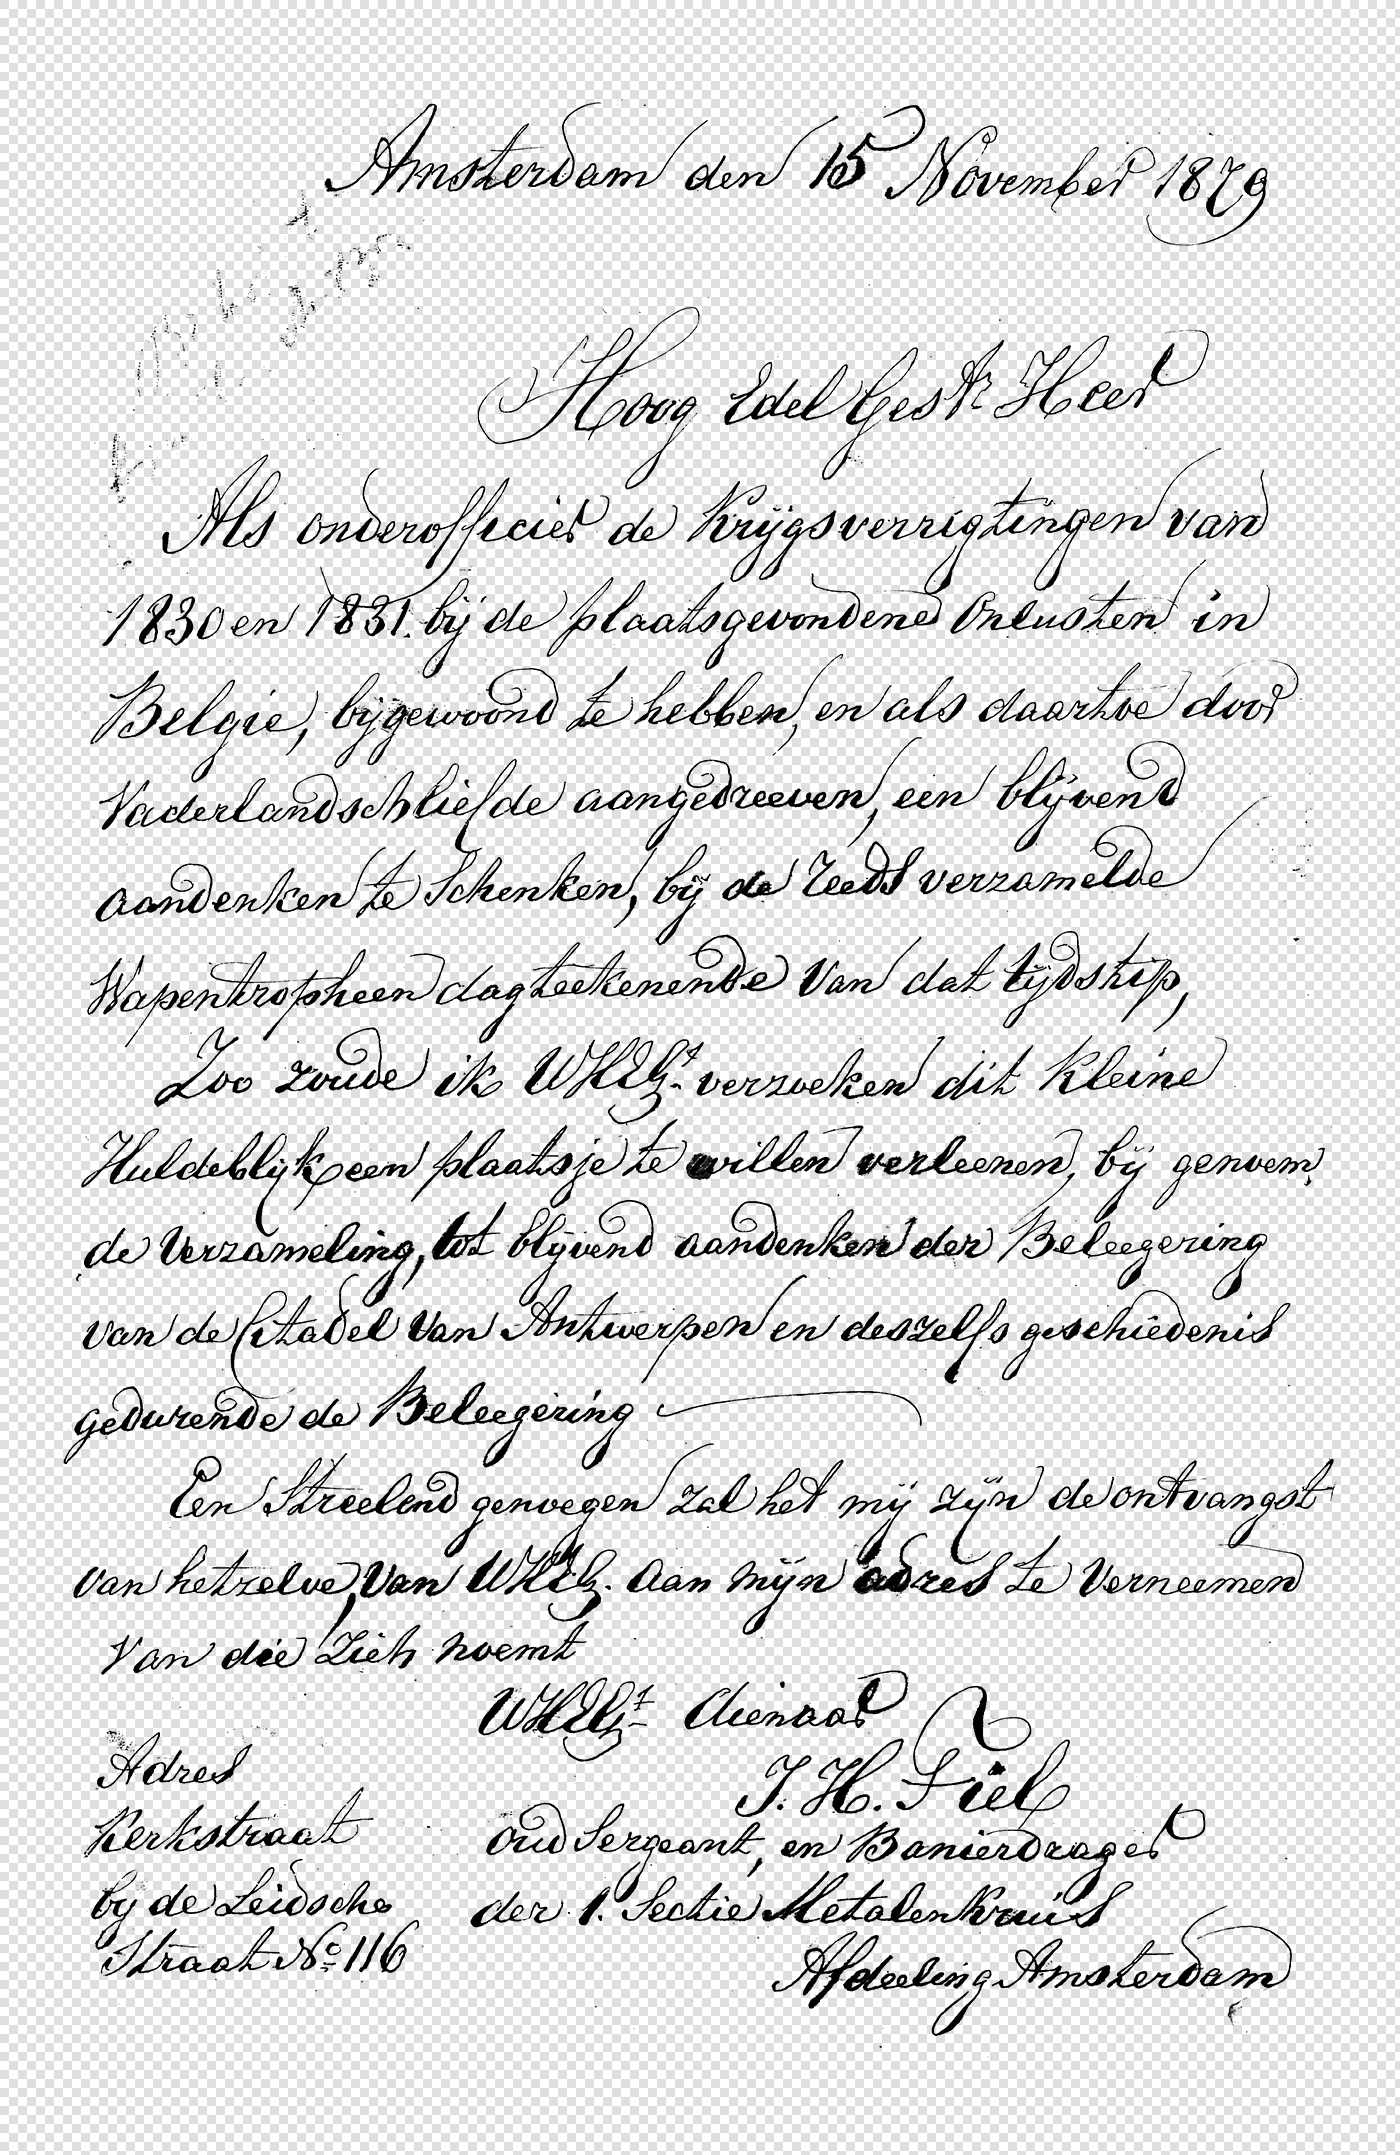 Amsterdam den 15 November 1879
Hoog Edel Gestr Heer
Als onderofficier de Krijgsverrigtingen van
1830 en 1831. bij de plaatsgevondene Onlusten in
Belgie, bijgewoond te hebben, en als daartoe door
Vaderlandschliefde aangedreeven, een blijvend
aandenken te Schenken, bij de reeds verzamelde
Wapentropheen dagteekenende van dat tijdstip,
Zoo zoude ik WHEG. verzoeken dit kleine
Huldeblijk een plaatsje te willen verleenen, bij genoem
de Verzameling, tot blijvend aandenken der Beleegering
van de Citadel van Antwerpen en deszelfs geschiedenis
gedurende de Beleegering
Een Streelend genoegen zal het mij zijn de ontvangst
van hetzelve, van WHEG. aan mijn adres te Verneemen
van die zich noemt
WHEG. dienaar
J. H. Fiel
oud Sergeant, en Banierdrager
der 1. Sectie Metalenkruis
Afdeeling Amsterdam
Adres
Kerkstraat
by de Leidsche
Straat No. 116